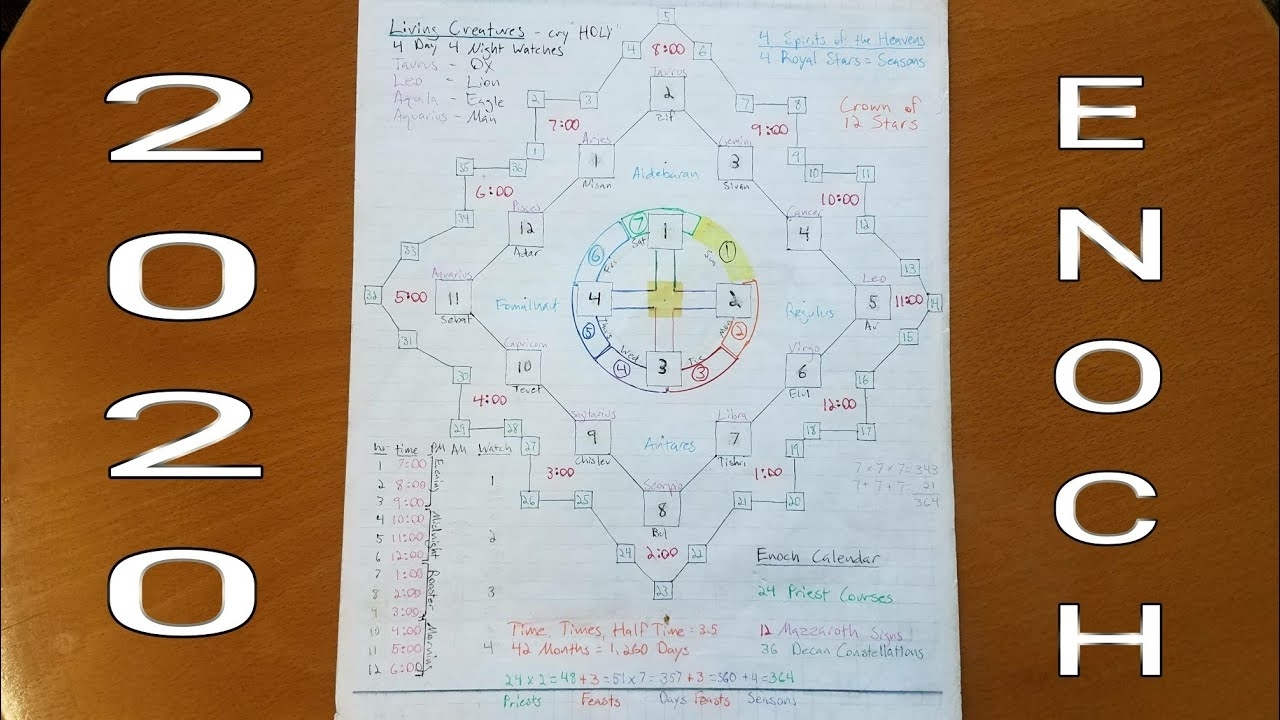 2020
ENOCH
Living Creatures - cry "HOLY"
4 Day 4 Night Watches
Taurus - Ox
Leo - Lion
Aquila - Eagle
Aquarius - Man
4 Spirits of the Heavens
4 Royal Stars = Seasons
Crown of
12 Stars
5
4 8:00 6
Taurus
2
Zif
2 3 7 8
7:00 9:00
1 9
Aries
1
Nisan
Gemini
3
Sivan
Aldebaran
35 36 10 11
6:00 10:00
34 12
Pisces
12
Adar
Cancer
4
33 13
32 5:00 11:00 14
31 15
Aquarius
11
Sebat
Leo
5
Av
Fomalhaut
Regulus
7 Sat
1
1 Sun
6 Fri
4
2
2 Mon
5 Thurs
4 Wed
3
3 Tue
Capricorn
10
Tevet
Virgo
6
Elul
30 16
4:00 12:00
29 28 18 17
Sagitarius
9
Chislev
Libra
7
Tishri
Antares
27 19
3:00 1:00
26 25 21 20
Scorpio
8
Bul
24 2:00 22
23
7 x 7 x 7 = 343
7 + 7 + 7 = 21
364
hr time PM AM Watch
1 7:00
2 8:00 1
3 9:00
4 10:00
5 11:00 2
6 12:00
7 1:00
8 2:00 3
9 3:00
10 4:00
11 5:00 4
12 6:00
Midnight
Rooster
Morning
Enoch Calendar
24 Priest Courses
12 Mazzaroth Signs
36 Decan Constellations
Time, Times, Half Time = 3.5
42 Months = 1,260 Days
24 x 2 = 48 + 3 = 51 x 7 = 357 + 3 = 360 + 4 = 364
Priests Feasts Days Feasts Seasons